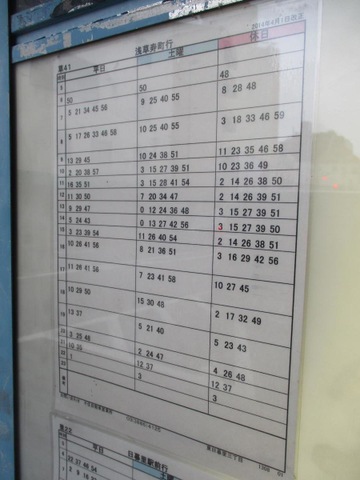 2014年4月1日改正
草41 浅草寿町行
平日 土曜 休日
5
6 50 50 48
7 5 21 34 45 56 9 25 40 55 8 28 48
8 5 17 26 33 46 58 10 25 40 55 3 18 33 46 59
9 13 29 45 10 24 38 51 11 23 35 46 58
10 2 20 38 57 3 15 27 39 51 10 23 36 49
11 16 35 51 3 15 28 41 54 2 14 26 38 50
12 11 30 50 7 20 34 47 2 14 26 39 51
13 9 29 47 0 12 24 36 48 3 15 27 39 51
14 5 24 43 0 13 27 42 56 3 15 27 39 50
15 3 23 39 54 11 26 40 54 2 14 26 38 51
16 10 26 41 56 8 21 36 51 3 16 29 42 56
17 11 26 41 56 7 23 41 58 10 27 45
18 10 29 50 15 30 48 2 17 32 49
19 13 37 5 21 40 5 23 43
20 3 25 48 2 24 47 4 26 48
21 10 35 12 37 12 37
22 1 3 3
草22
日暮里駅前行
平日